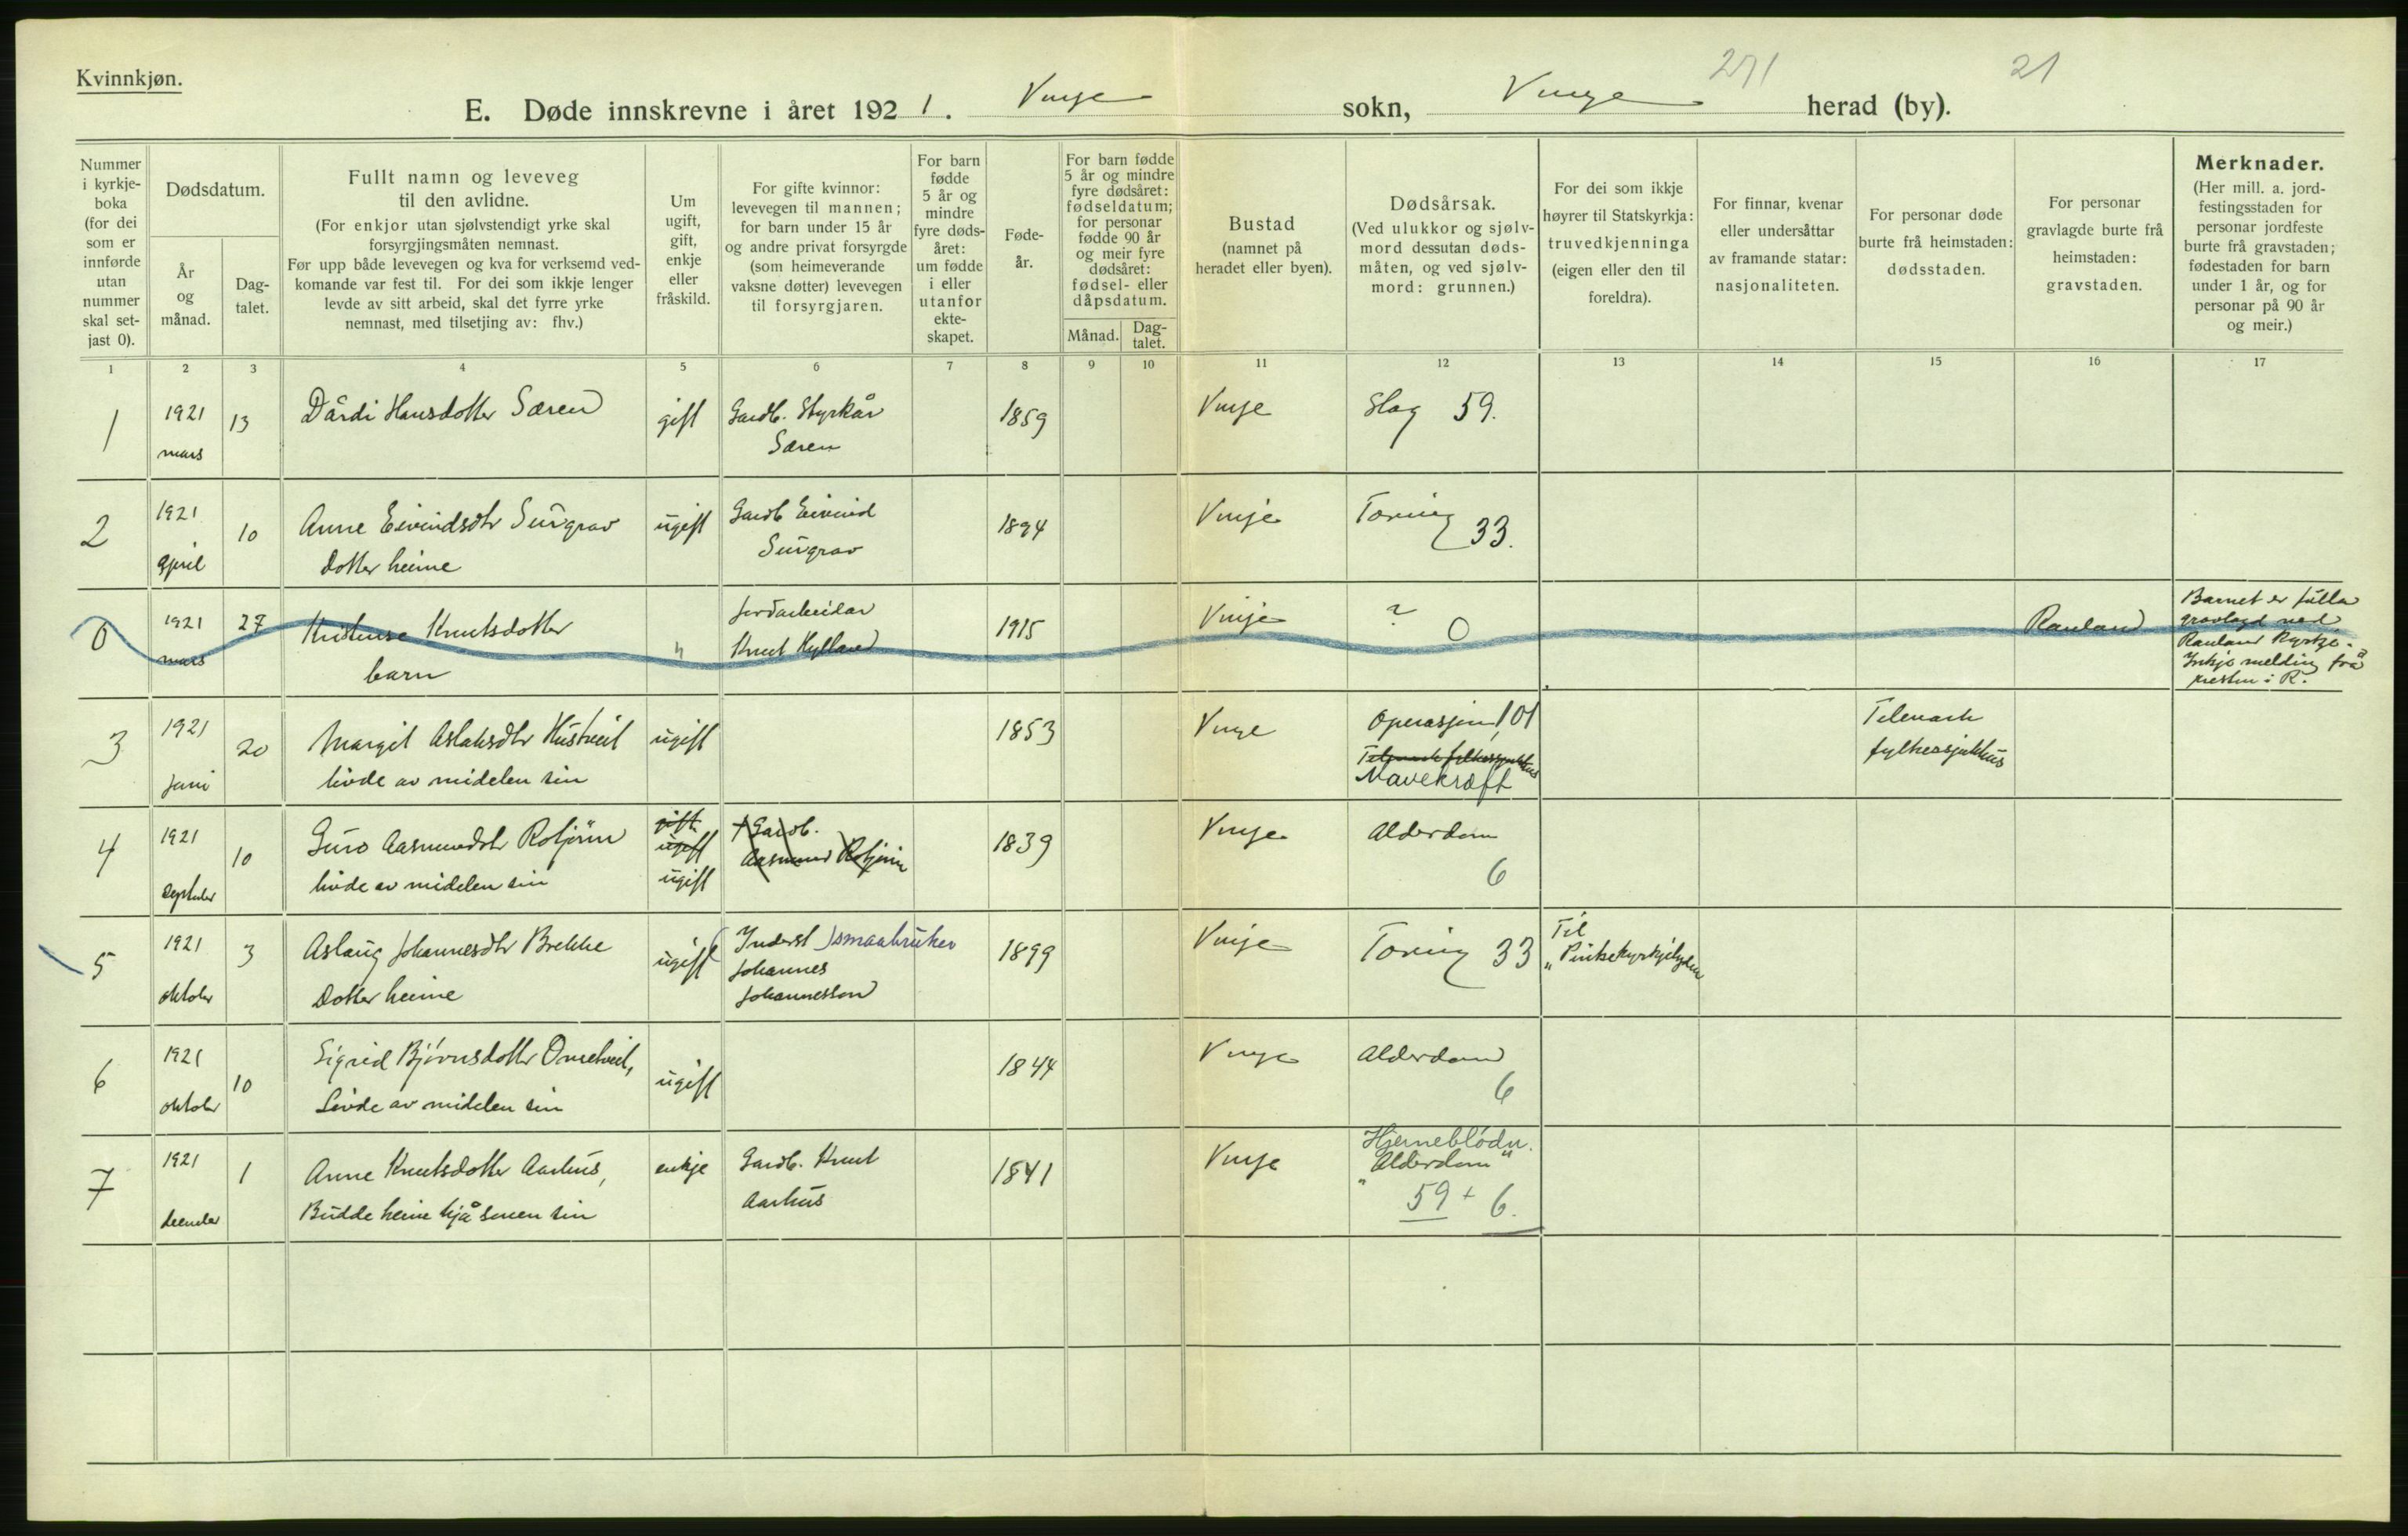 Kvinnkjøn.
271
21
E. Døde innskrevne i året 1921. Vinje sokn, Vinje herad (by).
Nummer i kyrkje-boka (for dei som er innførde utan nummer skal set-jast 0).
Dødsdatum.
År og månad.
Dag-talet.
Fullt namn og leveveg til den avlidne.
(For enkjor utan sjølvstendigt yrke skal forsyrgjingsmåten nemnast.
Før upp både levevegen og kva for verksemd ved-komande var fest til. For dei som ikkje lenger levde av sitt arbeid, skal det fyrre yrke nemnast, med tilsetjing av: fhv.)
Um ugift, gift, enkje eller fråskild.
For gifte kvinnor: levevegen til mannen; for barn under 15 år og andre privat forsyrgde (som heimeverande vaksne døtter) levevegen til forsyrgjaren.
For barn fødde 5 år og mindre fyre døds-året: um fødde i eller utanfor ekte-skapet.
Føde-år.
For barn fødde 5 år og mindre fyre dødsåret: fødseldatum; for personar fødde 90 år og meir fyre dødsåret: fødsel- eller dåpsdatum.
Månad.
Dag-talet.
Bustad (namnet på heradet eller byen).
Dødsårsak. (Ved ulukkor og sjølv-mord dessutan døds-måten, og ved sjølv-mord: grunnen.)
For dei som ikkje høyrer til Statskyrkja: truvedkjenninga (eigen eller den til foreldra).
For finnar, kvenar eller undersåttar av framande statar: nasjonaliteten.
For personar døde burte frå heimstaden: dødsstaden.
For personar gravlagde burte frå heimstaden: gravstaden.
Merknader. (Her mill. a. jord-festingsstaden for personar jordfeste burte frå gravstaden; fødestaden for barn under 1 år, og for personar på 90 år og meir.)
1 2 3 4 5 6 7 8 9 10 11 12 13 14 15 16 17
1 1921 mars 13 Dårdi Hansdotter Særen gift Gardb. Styrkår Særen 1859 Vinje Slag 59.
2 1921 April 10 Anne Eivindsdtr Surgrav Dotter heime ugift Gardb Eivind Surgrav 1894 Vinje Tæring 33.
0 1921 mars 27 Kristense Knutsdotter barn " Jordarbeidar Knut Hylland 1915 Vinje ? 0 Rauland Barnet er stilla gravlagd ved Rauland kyrkje. Inkje melding frå presten i R.
3 1921 juni 20 Margit Aslaksdtr Hustveit livde av midelen sin ugift 1853 Vinje Operasjon 101 Telemark fylkessjukhus Mavekræft Telemark fylkessjukhus
4 1921 September 10 Guro Aasmundsdtr Rotjørn livde av midelen sin gift ugift ugift + Gardb. Aasmund Rotjørn 1839 Vinje Alderdom 6
5 1921 oktober 3 Aslaug Johannesdtr Brekke Dotter heime ugift Inderst smaabruker Johannes Johannesson 1899 Vinje Tæring 33 Til "Pinksekyrkjelyden
6 1921 oktober 10 Sigrid Bjørnsdotter Ønsetveit, Livde av midelen sin ugift 1844 Vinje Alderdom 6
7 1921 desember 1 Anne Knutsdotter Aarhus, Budde heime hjå sonen sin enkje Gardb. Knut Aarhus 1841 Vinje Hjerneblødn. "Alderdom" 59 + 6.